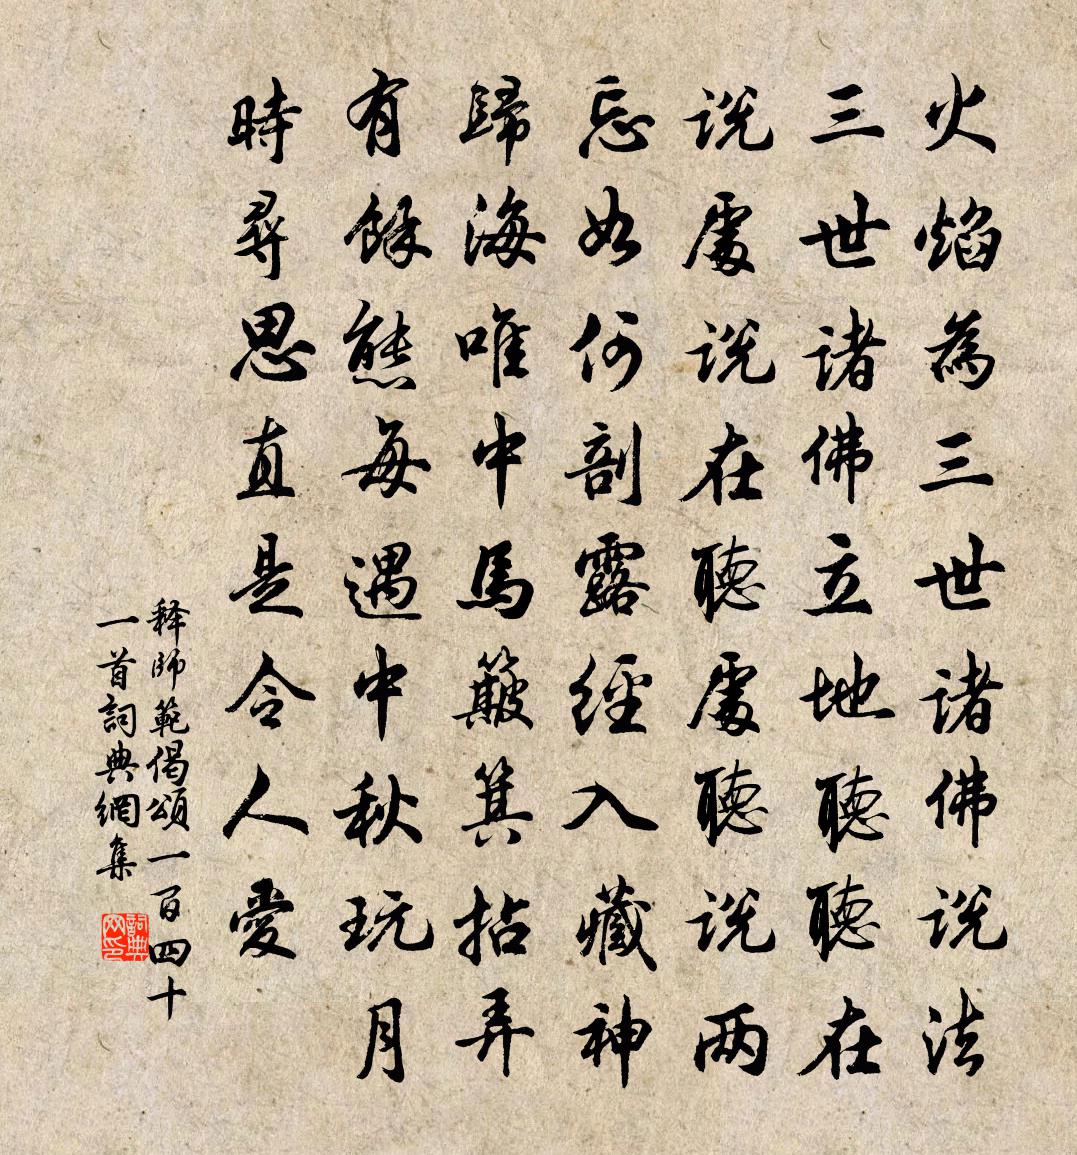 火焰為三世諸佛說法
三世諸佛立地聽聽在
說處說在聽處聽說兩
忘如何剖露經入藏神
歸海唯中馬簸箕拈弄
有餘態每遇中秋玩月
時尋思直是令人愛
释師範偈頌一百四十
一首詞典網集
詞典
网印